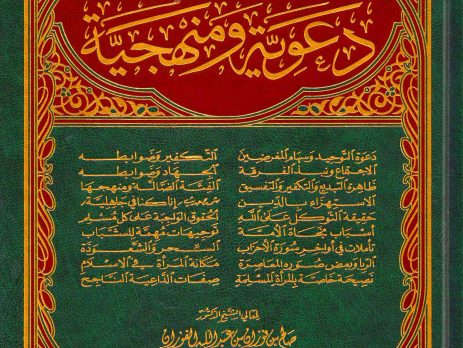 دعوية ومنهجية
دعوة التوحيد وسهام المغرضين التكفير وضوابطه
الاجتماع ونبذ الفرقة الجهاد وضوابطه
ظاهرة التبديع والتكفير والتفسيق الفئة الضالة ومنهجها
الاستهزاء بالدين إنا كنا في جاهلية
حقيقة التوكل على الله الحقوق الواجبة على كل مسلم
أسباب نجاة الأمة توجيهات مهمة للشباب
تأملات في أواخر سورة الأحزاب السحر والشعوذة
الربا وبعض صوره المعاصرة مكانة المرأة في الإسلام
نصيحة خاصة بالمرأة المسلمة صفات الداعية الناجح
لمعالي الشيخ الدكتور
صالح بن فوزان بن عبد الله الفوزان